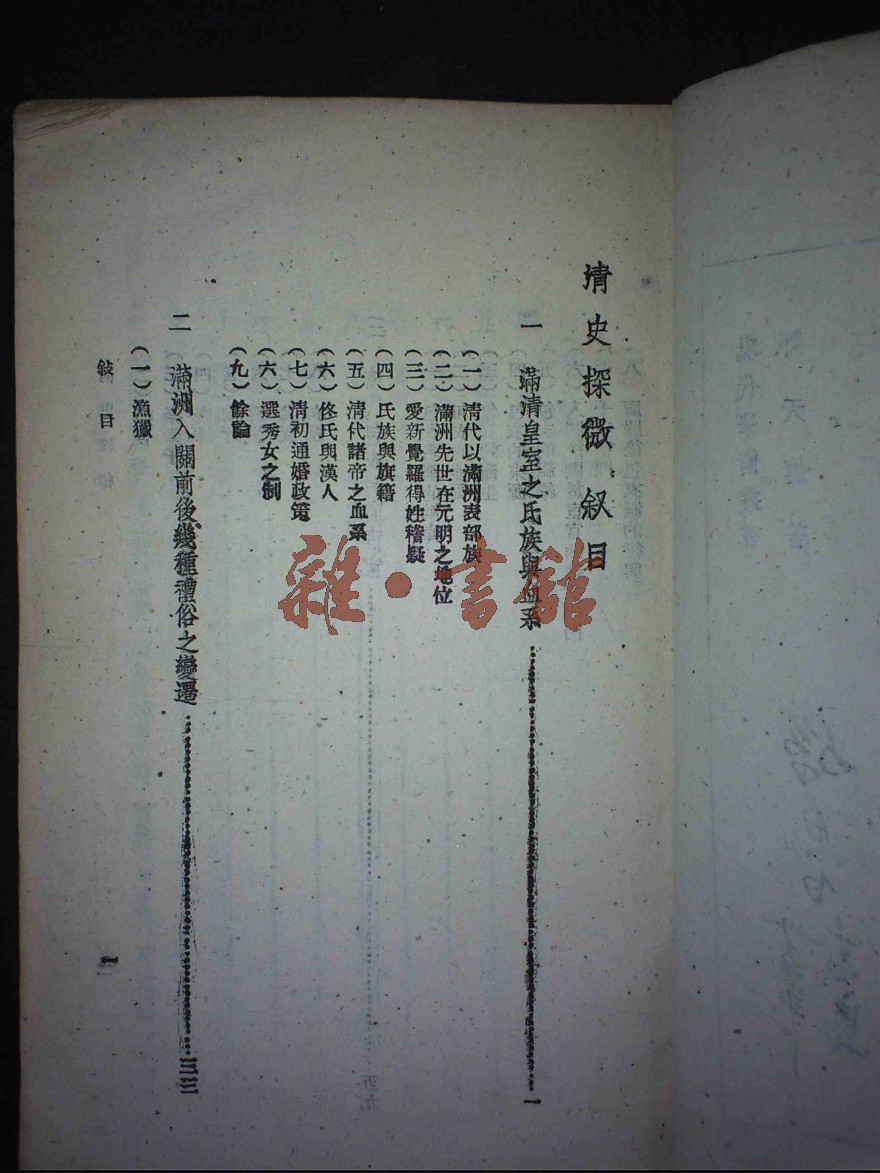 清史探微叙目
一 滿清皇室之氏族與血系……一
(一)清代以滿洲表部族
(二)滿洲先世在元明之地位
(三)愛新覺羅得姓稽疑
(四)氏族與旗籍
(五)清代諸帝之血系
(六)佟氏與漢人
(七)清初通婚政策
(六)選秀女之制
(九)餘論
二 滿洲入關前後幾種禮俗之變遷……三二
(一)漁獵
敍目
一
雜·書館